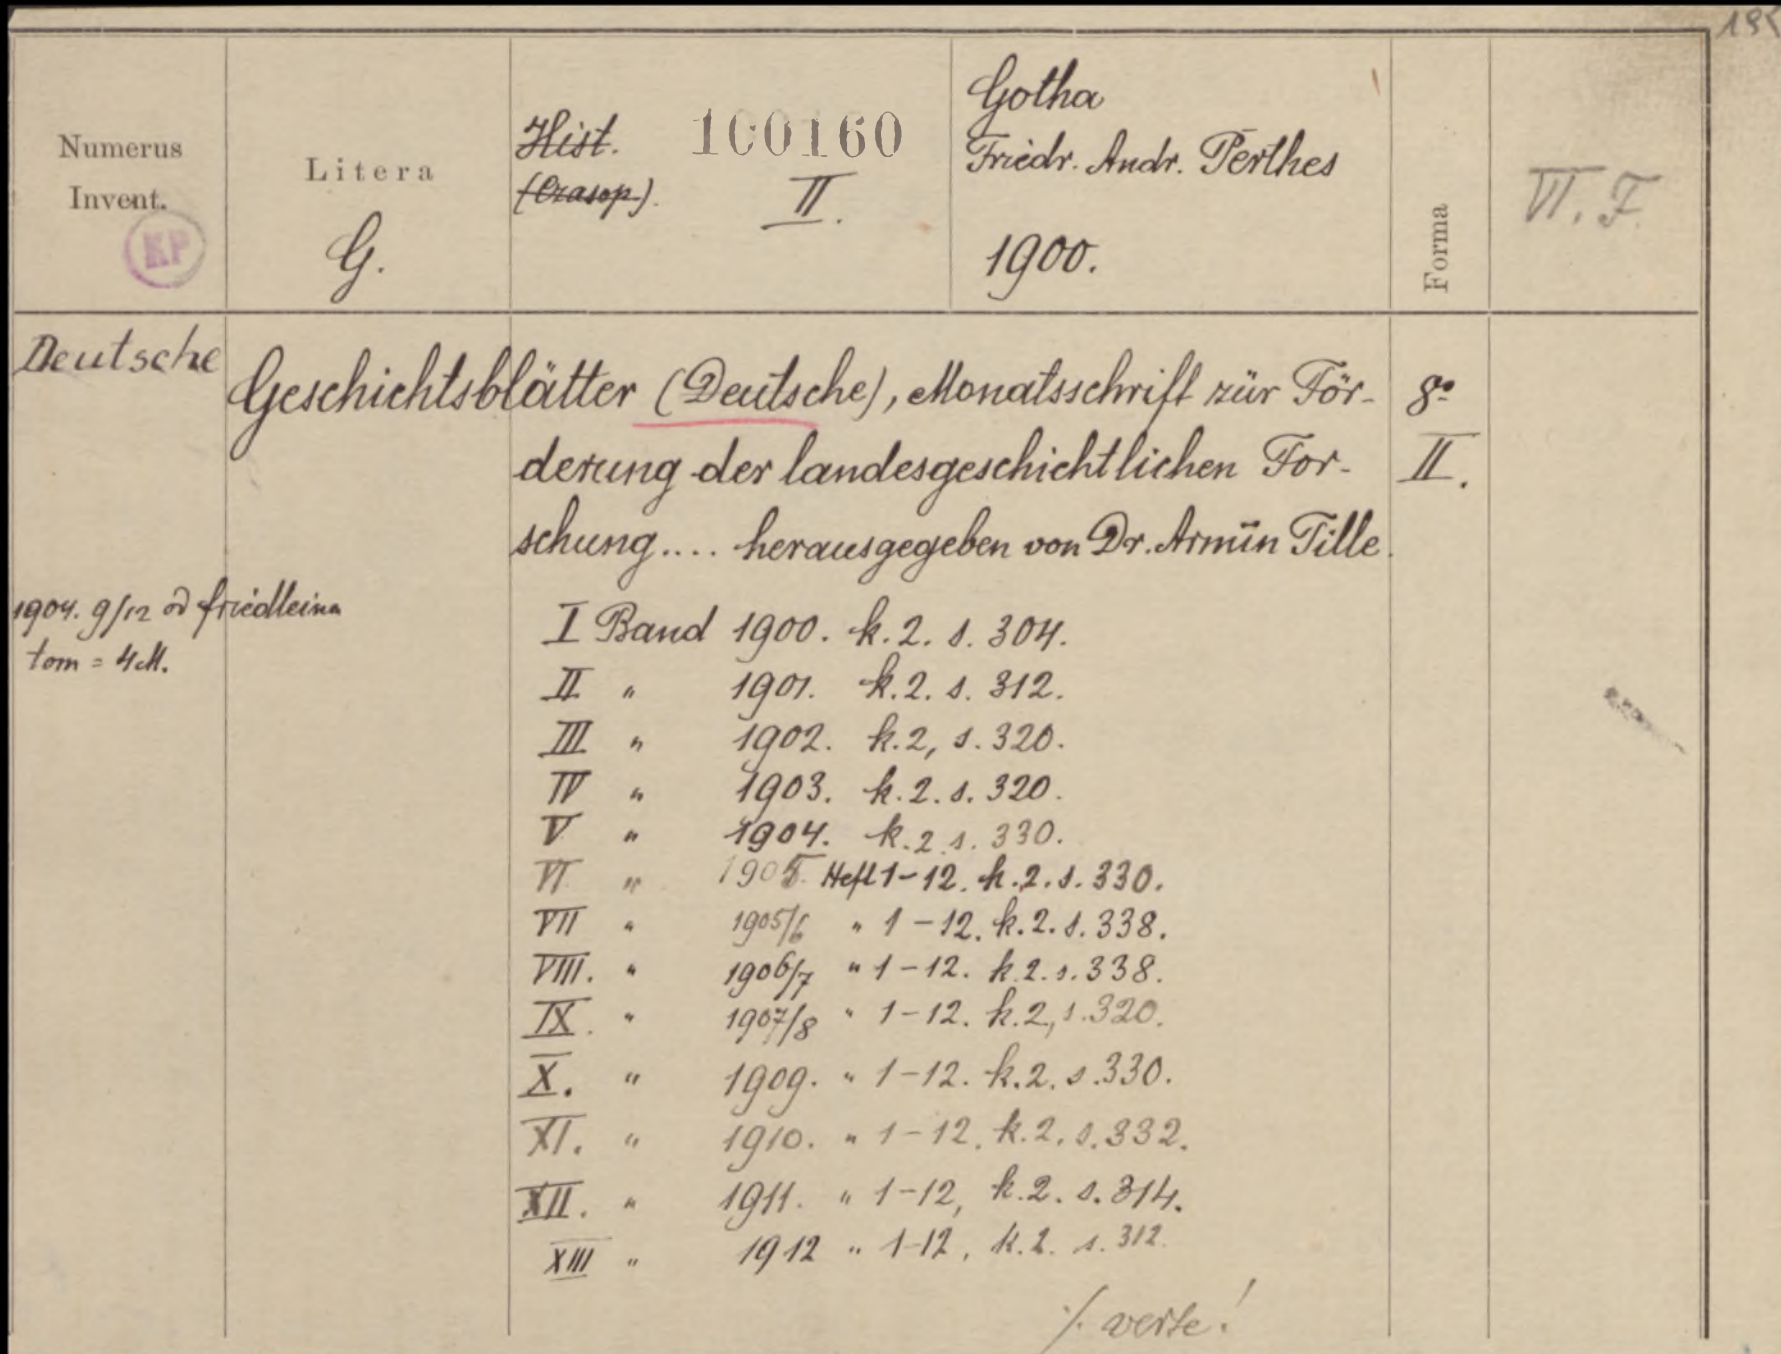 Numerus
Invent.
KP
Litera
G.
~~Hist.~~
~~(Czasop.)~~.
100160
II.
Gotha
Friedr. Andr. Perthes
1900.
Forma
VI. F.
Deutsche
Geschichtsblätter (Deutsche), Monatsschrift zür För-
derung der landesgeschichtlichen For-
schung.... herausgegeben von Dr. Armin Tille.
8o
II.
1904. 9/12 od Friedleina
tom = 4 M.
I Band 1900. k. 2. s. 304.
II " 1901. k. 2. s. 312.
III " 1902. k. 2, s. 320.
IV " 1903. k. 2. s. 320.
V " 1904. k. 2 s. 330.
VI " 1905 Heft 1-12. k. 2. s. 330.
VII " 1905/6 " 1-12. k. 2. s. 338.
VIII. " 1906/7 " 1-12. k. 2. s. 338.
IX. " 1907/8 " 1-12. k. 2, s. 320.
X. " 1909. " 1-12. k. 2. s. 330.
XI. " 1910. " 1-12. k. 2. s. 332.
XII. " 1911. " 1-12, k. 2. s. 314.
XIII " 1912 " 1-12, k. 2. s. 312.
./. verte!